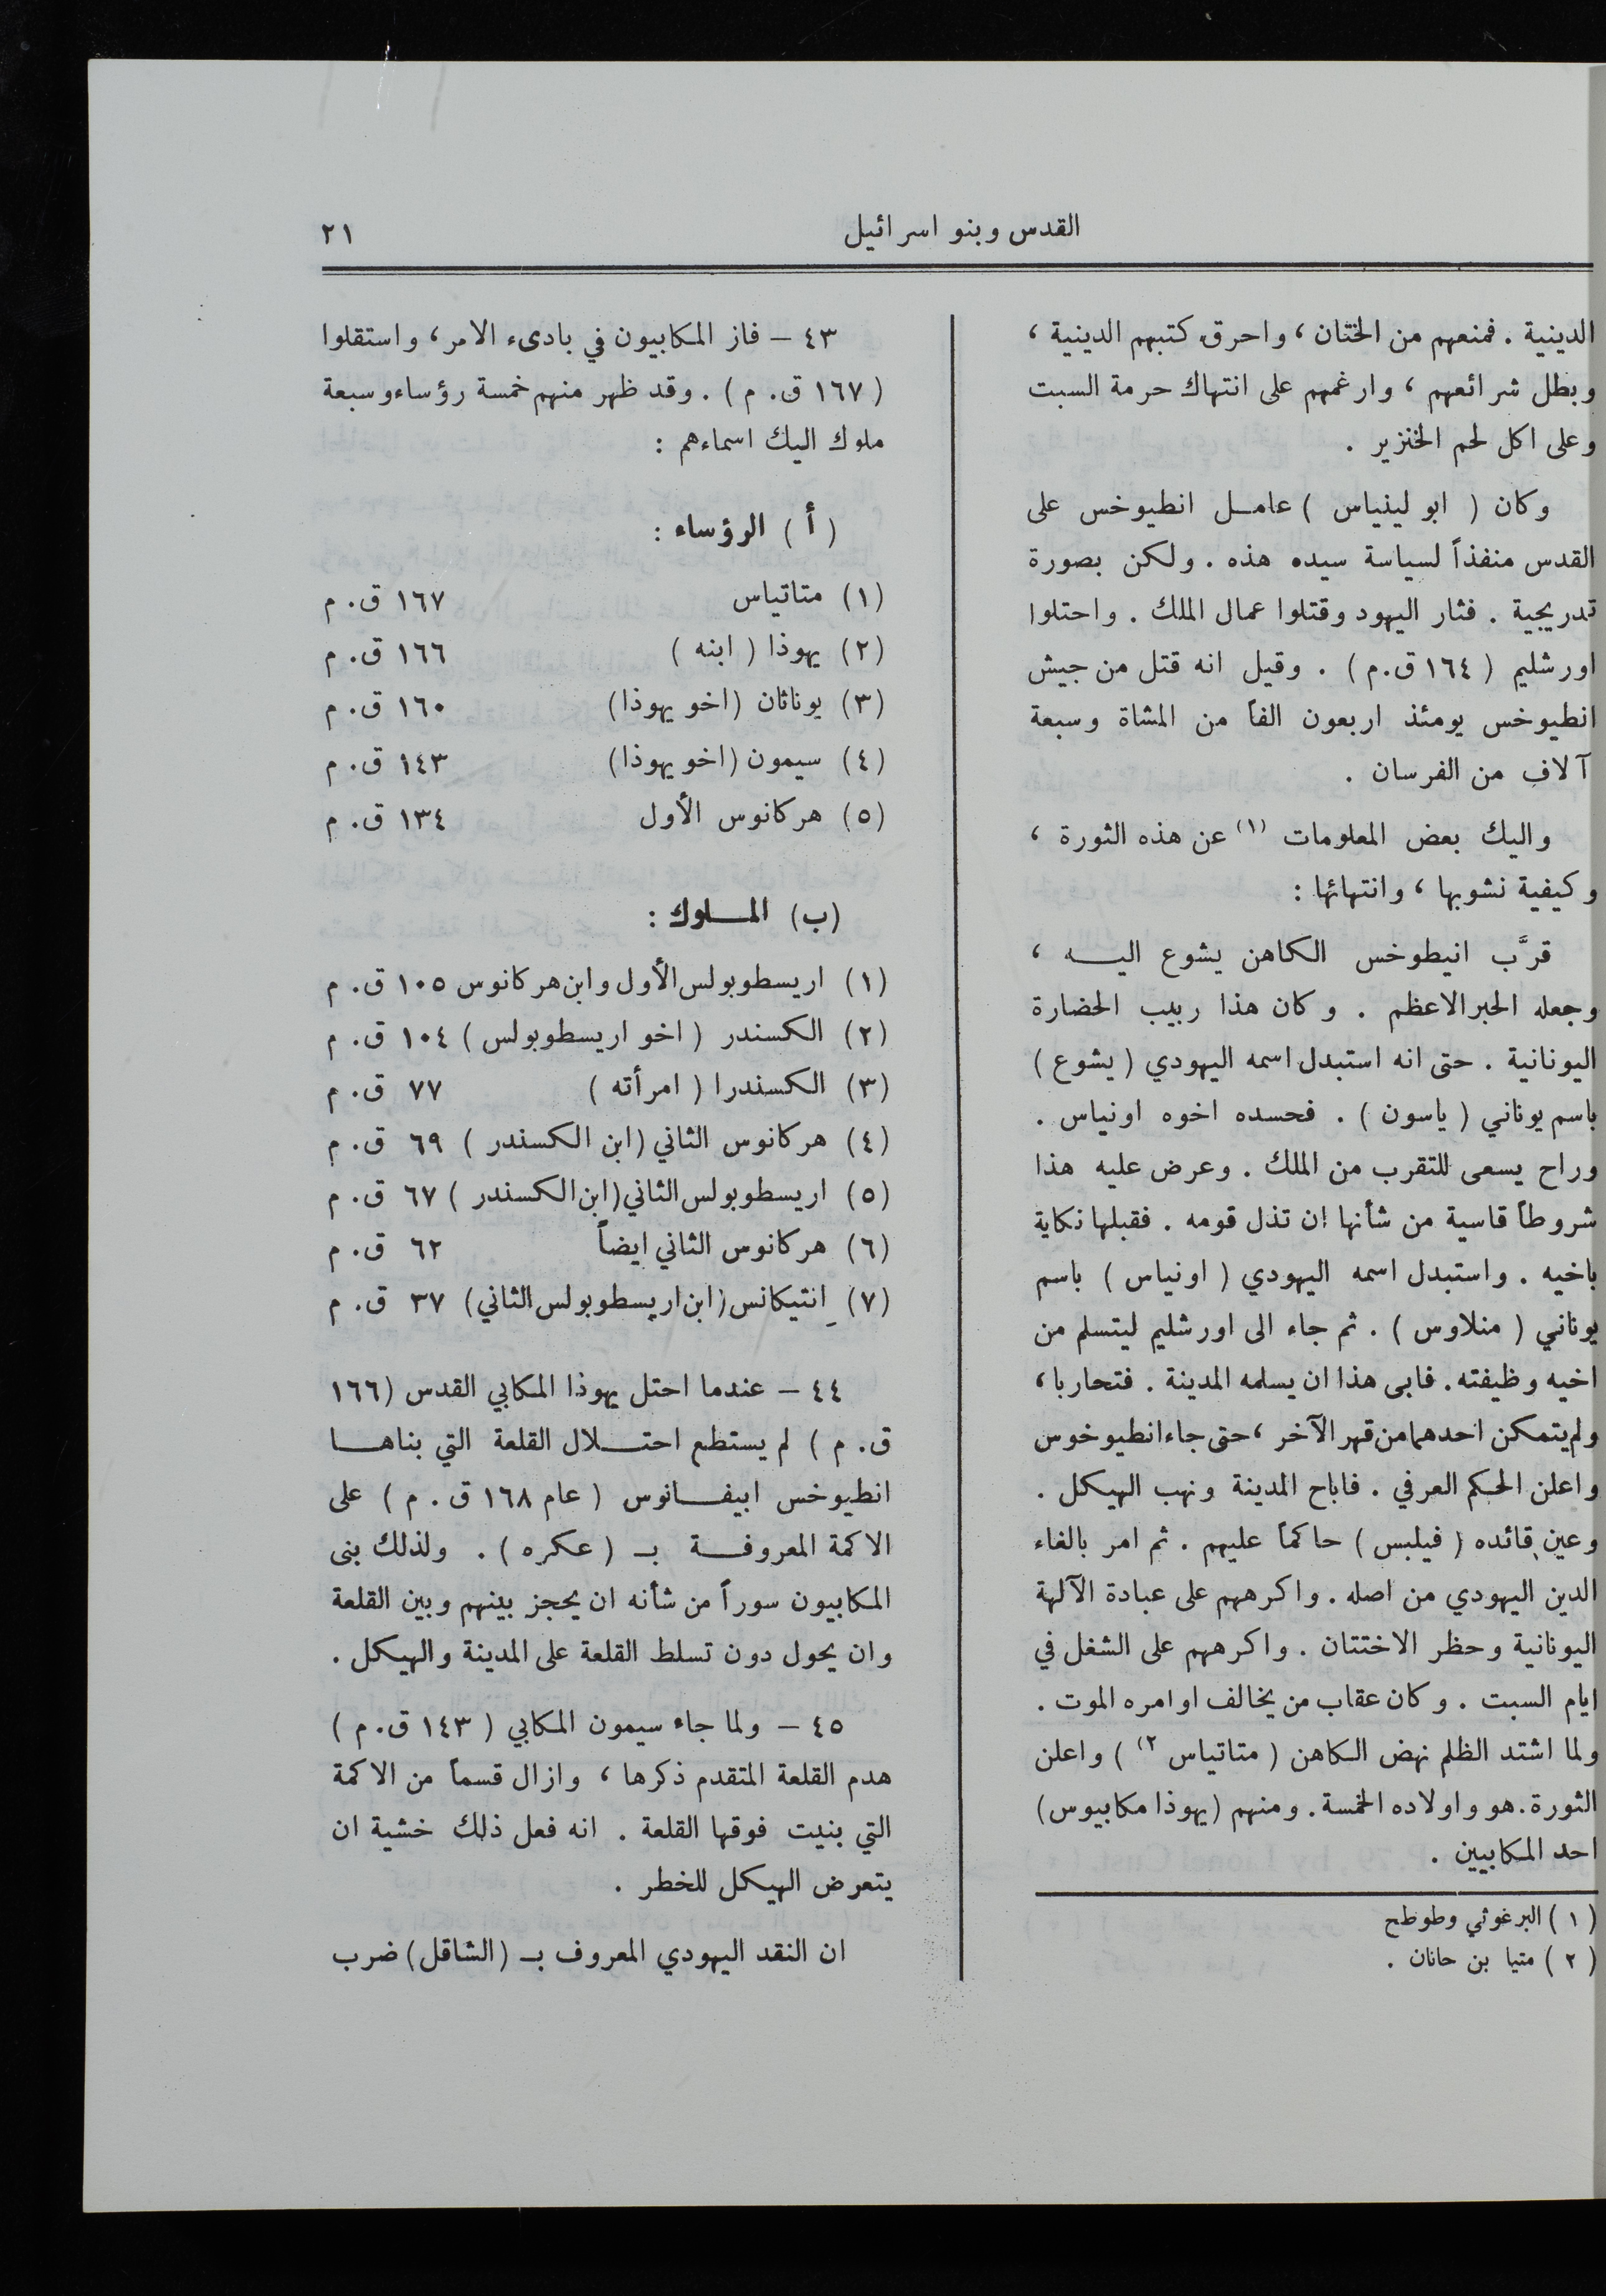 القدس وبنو اسرائيل
٢١
الدينية . فمنعهم من الختان ، واحرق كتبهم الدينية ،
وبطل شرائعهم ، وارغمهم على انتهاك حرمة السبت
وعلى اكل لحم الخنزير .
وكان ( ابو لينياس ) عامل انطيوخس على
القدس منفذاً لسياسة سيده هذه . ولكن بصورة
تدريجية . فثار اليهود وقتلوا عمال الملك . واحتلوا
اورشليم ( ١٦٤ ق.م ) . وقيل انه قتل من جيش
انطيوخس يومئذ اربعون الفاً من المشاة وسبعة
آلاف من الفرسان .
واليك بعض المعلومات (١) عن هذه الثورة ،
وكيفية نشوبها ، وانتهائها :
قرَّب انيطوخس الكاهن يشوع اليه ،
وجعله الحبر الاعظم . وكان هذا ربيب الحضارة
اليونانية . حتى انه استبدل اسمه اليهودي ( يشوع )
باسم يوناني ( ياسون ) . فحسده اخوه اونياس .
وراح يسعى للتقرب من الملك . وعرض عليه هذا
شروطاً قاسية من شأنها ان تذل قومه . فقبلها نكاية
باخيه . واستبدل اسمه اليهودي ( اونياس ) باسم
يوناني ( منلاوس ) . ثم جاء الى اورشليم ليتسلم من
اخيه وظيفته . فابى هذا ان يسلمه المدينة . فتحاربا ،
ولم يتمكن احدهما من قهر الآخر ، حتى جاء انطيوخوس
واعلن الحكم العرفي . فاباح المدينة ونهب الهيكل .
وعين قائده ( فيلبس ) حاكماً عليهم . ثم امر بالغاء
الدين اليهودي من اصله . واكرههم على عبادة الآلهة
اليونانية وحظر الاختتان . واكرههم على الشغل في
ايام السبت . وكان عقاب من يخالف اوامره الموت .
ولما اشتد الظلم نهض الكاهن ( متاتياس ٢) ) واعلن
الثورة . هو واولاده الخمسة . ومنهم (يهوذا مكابيوس)
احد المكابيين .
( ١ ) البرغوثي وطوطح
( ٢ ) متيا بن حانان .
٤٣ – فاز المكابيون في بادىء الامر ، واستقلوا
( ١٦٧ ق. م ) . وقد ظهر منهم خمسة رؤساء وسبعة
ملوك اليك اسماءهم :
( أ ) الرؤساء :
(١) متاتياس ١٦٧ ق. م
(٢) يهوذا ( ابنه ) ١٦٦ ق. م
(٣) يوناثان (اخو يهوذا) ١٦٠ ق. م
(٤) سيمون (اخو يهوذا) ١٤٣ ق. م
(٥) هركانوس الأول ١٣٤ ق. م
(ب) الملوك :
(١) اريسطوبولس الأول وابن هركانوس ١٠٥ ق. م
(٢) الكسندر ( اخو اريسطوبولس ) ١٠٤ ق. م
(٣) الكسندرا ( امرأته ) ٧٧ ق. م
(٤) هركانوس الثاني (ابن الكسندر ) ٦٩ ق. م
(٥) اريسطوبولس الثاني (ابن الكسندر ) ٦٧ ق. م
(٦) هركانوس الثاني ايضاً ٦٢ ق. م
(٧) انتيكانس (ابن اريسطوبولس الثاني) ٣٧ ق. م
٤٤ – عندما احتل يهوذا المكابي القدس (١٦٦
ق. م ) لم يستطع احتلال القلعة التي بناها
انطيوخس ابيفانوس ( عام ١٦٨ ق . م ) على
الاكمة المعروفة بـ ( عكره ) . ولذلك بنى
المكابيون سوراً من شأنه ان يحجز بينهم وبين القلعة
وان يحول دون تسلط القلعة على المدينة والهيكل .
٤٥ – ولما جاء سيمون المكابي ( ١٤٣ ق. م )
هدم القلعة المتقدم ذكرها ، وازال قسماً من الاكمة
التي بنيت فوقها القلعة . انه فعل ذلك خشية ان
يتعرض الهيكل للخطر .
ان النقد اليهودي المعروف بـ (الشاقل) ضرب